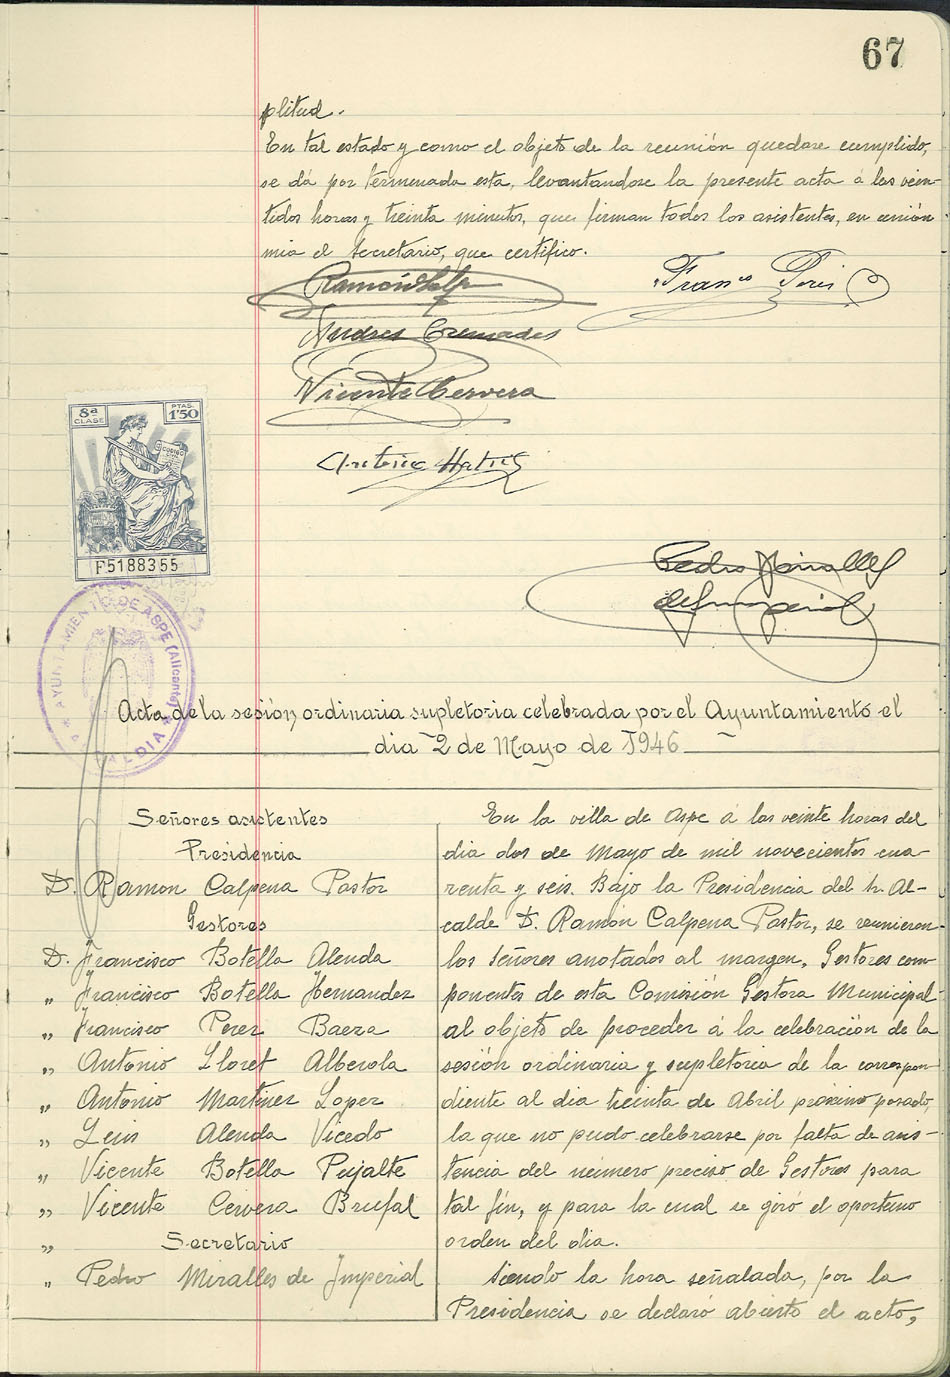 67
plitud.
En tal estado y como el objeto de la reunión quedase cumplido,
se dá por terminada esta, levantandose la presente acta á las vein-
tidos horas y treinta minutos, que firman todos los asistentes, en unión
mia el Secretario, que certifico.
Franco Peris
Andres Cremades
Vicente Cervera
8ª CLASE
PTAS. 1'50
CODIGO
F5188355
AYUNTAMIENTO DE ASPE (Alicante)
ALCALDIA
Acta de la sesión ordinaria supletoria celebrada por el Ayuntamiento el
dia 2 de Mayo de 1946
Señores asistentes
Presidencia
D. Ramon Calpena Pastor
Gestores
D. Francisco Botella Alenda
" Francisco Botella Hernandez
" Francisco Perez Baeza
" Antonio Lloret Alberola
" Antonio Martinez Lopez
" Luis Alenda Vicedo
" Vicente Botella Pujalte
" Vicente Cervera Brufal
" Secretario
" Pedro Miralles de Imperial
En la villa de Aspe á las veinte horas del
dia dos de Mayo de mil novecientos cua-
renta y seis. Bajo la Presidencia del Sr. Al-
calde D. Ramón Calpena Pastor, se reunieron
los Señores anotados al margen, Gestores com-
ponentes de esta Comisión Gestora Municipal
al objeto de proceder á la celebración de la
sesión ordinaria y supletoria de la correspon-
diente al dia treinta de Abril próximo pasado,
la que no pudo celebrarse por falta de asis-
tencia del número preciso de Gestores para
tal fín, y para la cual se giró el oportuno
orden del dia.
Siendo la hora señalada, por la
Presidencia se declaró abierto el acto,